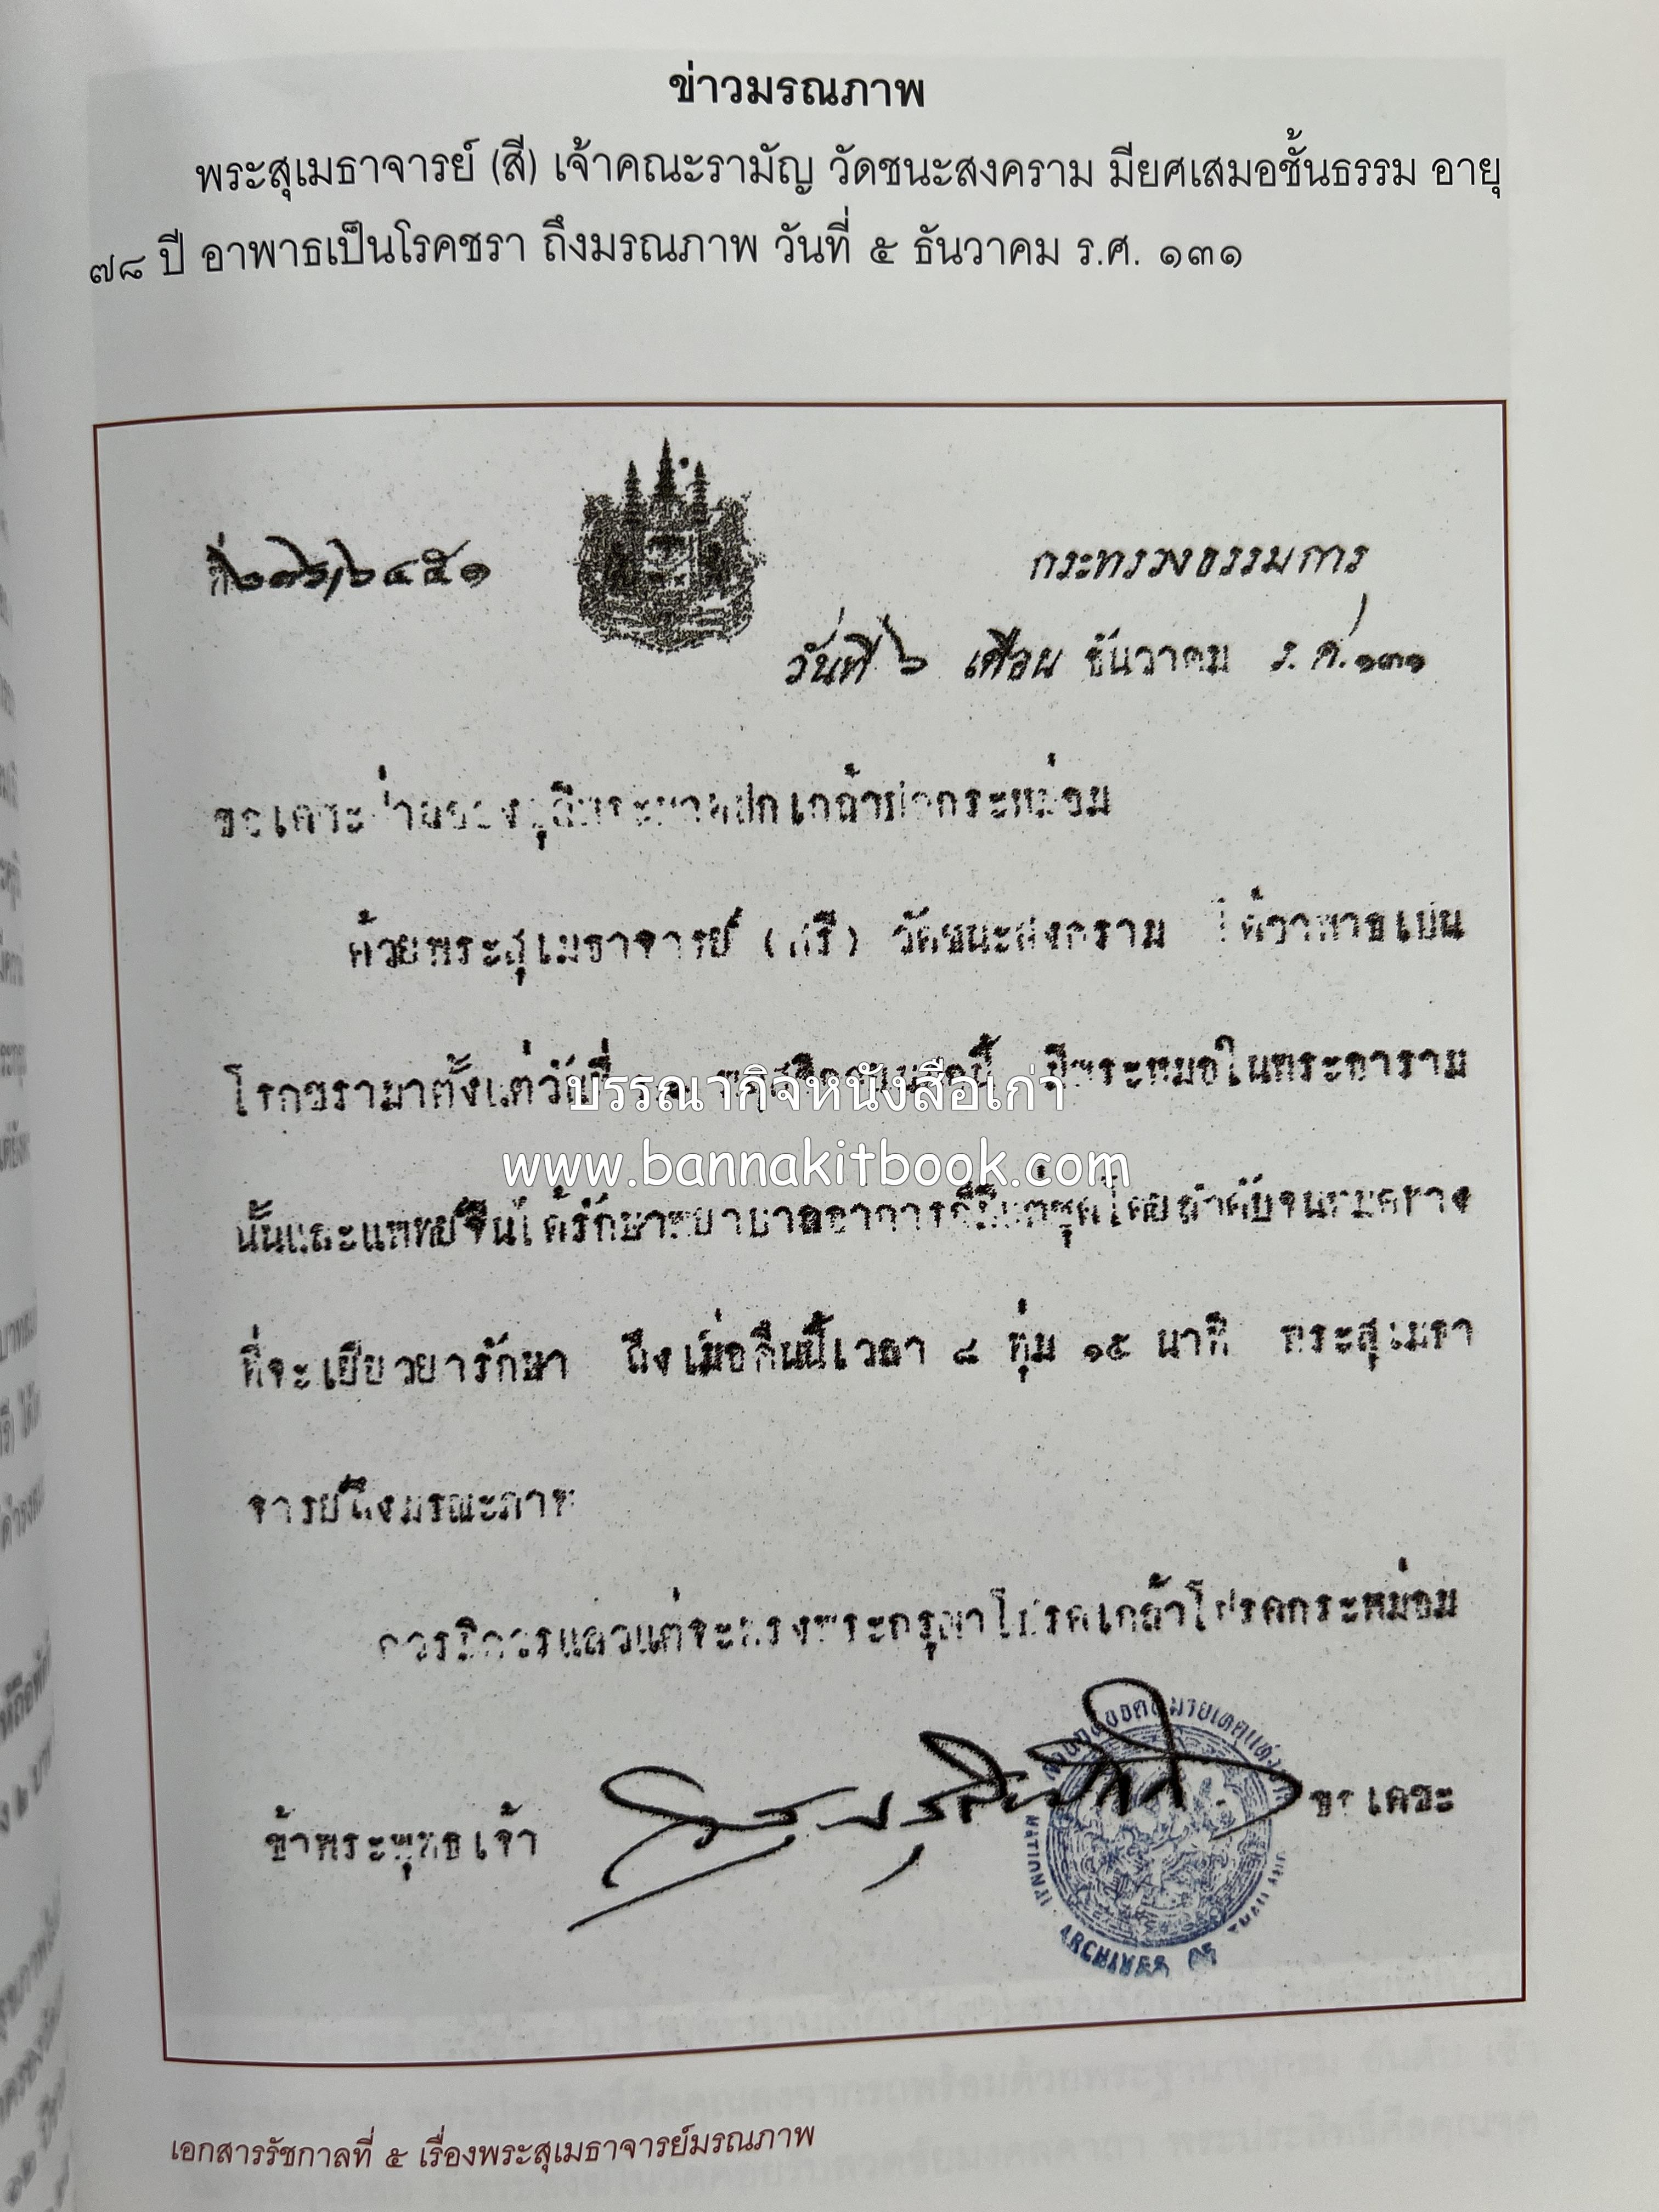 ข่าวมรณภาพ
พระสุเมธาจารย์ (สี) เจ้าคณะรามัญ วัดชนะสงคราม มียศเสมอชั้นธรรม อายุ
๗๘ ปี อาพาธเป็นโรคชรา ถึงมรณภาพ วันที่ ๕ ธันวาคม ร.ศ. ๑๓๑
กระทรวงธรรมการ
วันที่ ๖ เดือน ธันวาคม ร.ศ. ๑๓๑
ขอเดชะฝ่าลอองธุลีพระบาทปกเกล้าปกกระหม่อม
ด้วยพระสุเมธาจารย์ (ศรี) วัดชนะสงคราม ได้อาพาธเปน
โรคชรามาตั้งแต่วันที่ นี้ มีพระหมอในพระอาราม
นั้นและแพทย์จีนได้รักษาพยาบาลอาการก็มีแต่ซุดโดยลำดับจนหมดทาง
ที่จะเยียวยารักษา ถึงเมื่อคืนนี้เวลา ๘ ทุ่ม ๑๕ นาที พระสุเมธา
จารย์ถึงมรณะภาพ
ควรมิควรแล้วแต่จะทรงพระกรุณาโปรดเกล้าโปรดกระหม่อม
ข้าพระพุทธเจ้า ขอเดชะ
NATIONAL ARCHIVES OF THAILAND
บรรณากิจหนังสือเก่า
www.bannakitbook.com
เอกสารรัชกาลที่ ๕ เรื่องพระสุเมธาจารย์มรณภาพ